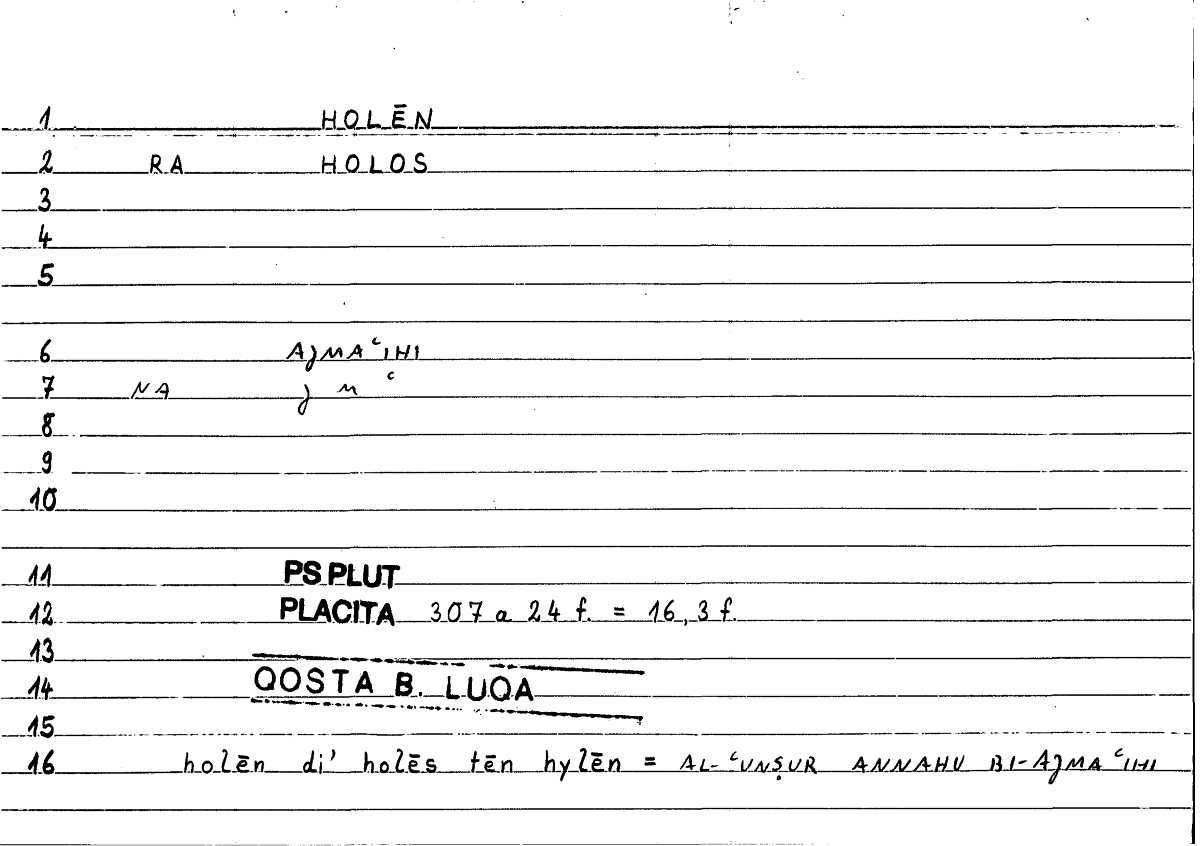 1 HOLĒN
2 RA HOLOS
3
4
5
6 AJMAʿIHI
7 NA J M ʿ
8
9
10
11 PS.PLUT
12 PLACITA 307 a 24 f. = 16,3 f.
13
14 QOSTA B. LUQA
15
16 holēn di' holēs tēn hylēn = AL-ʿUNṢUR ANNAHU BI-AJMAʿIHI